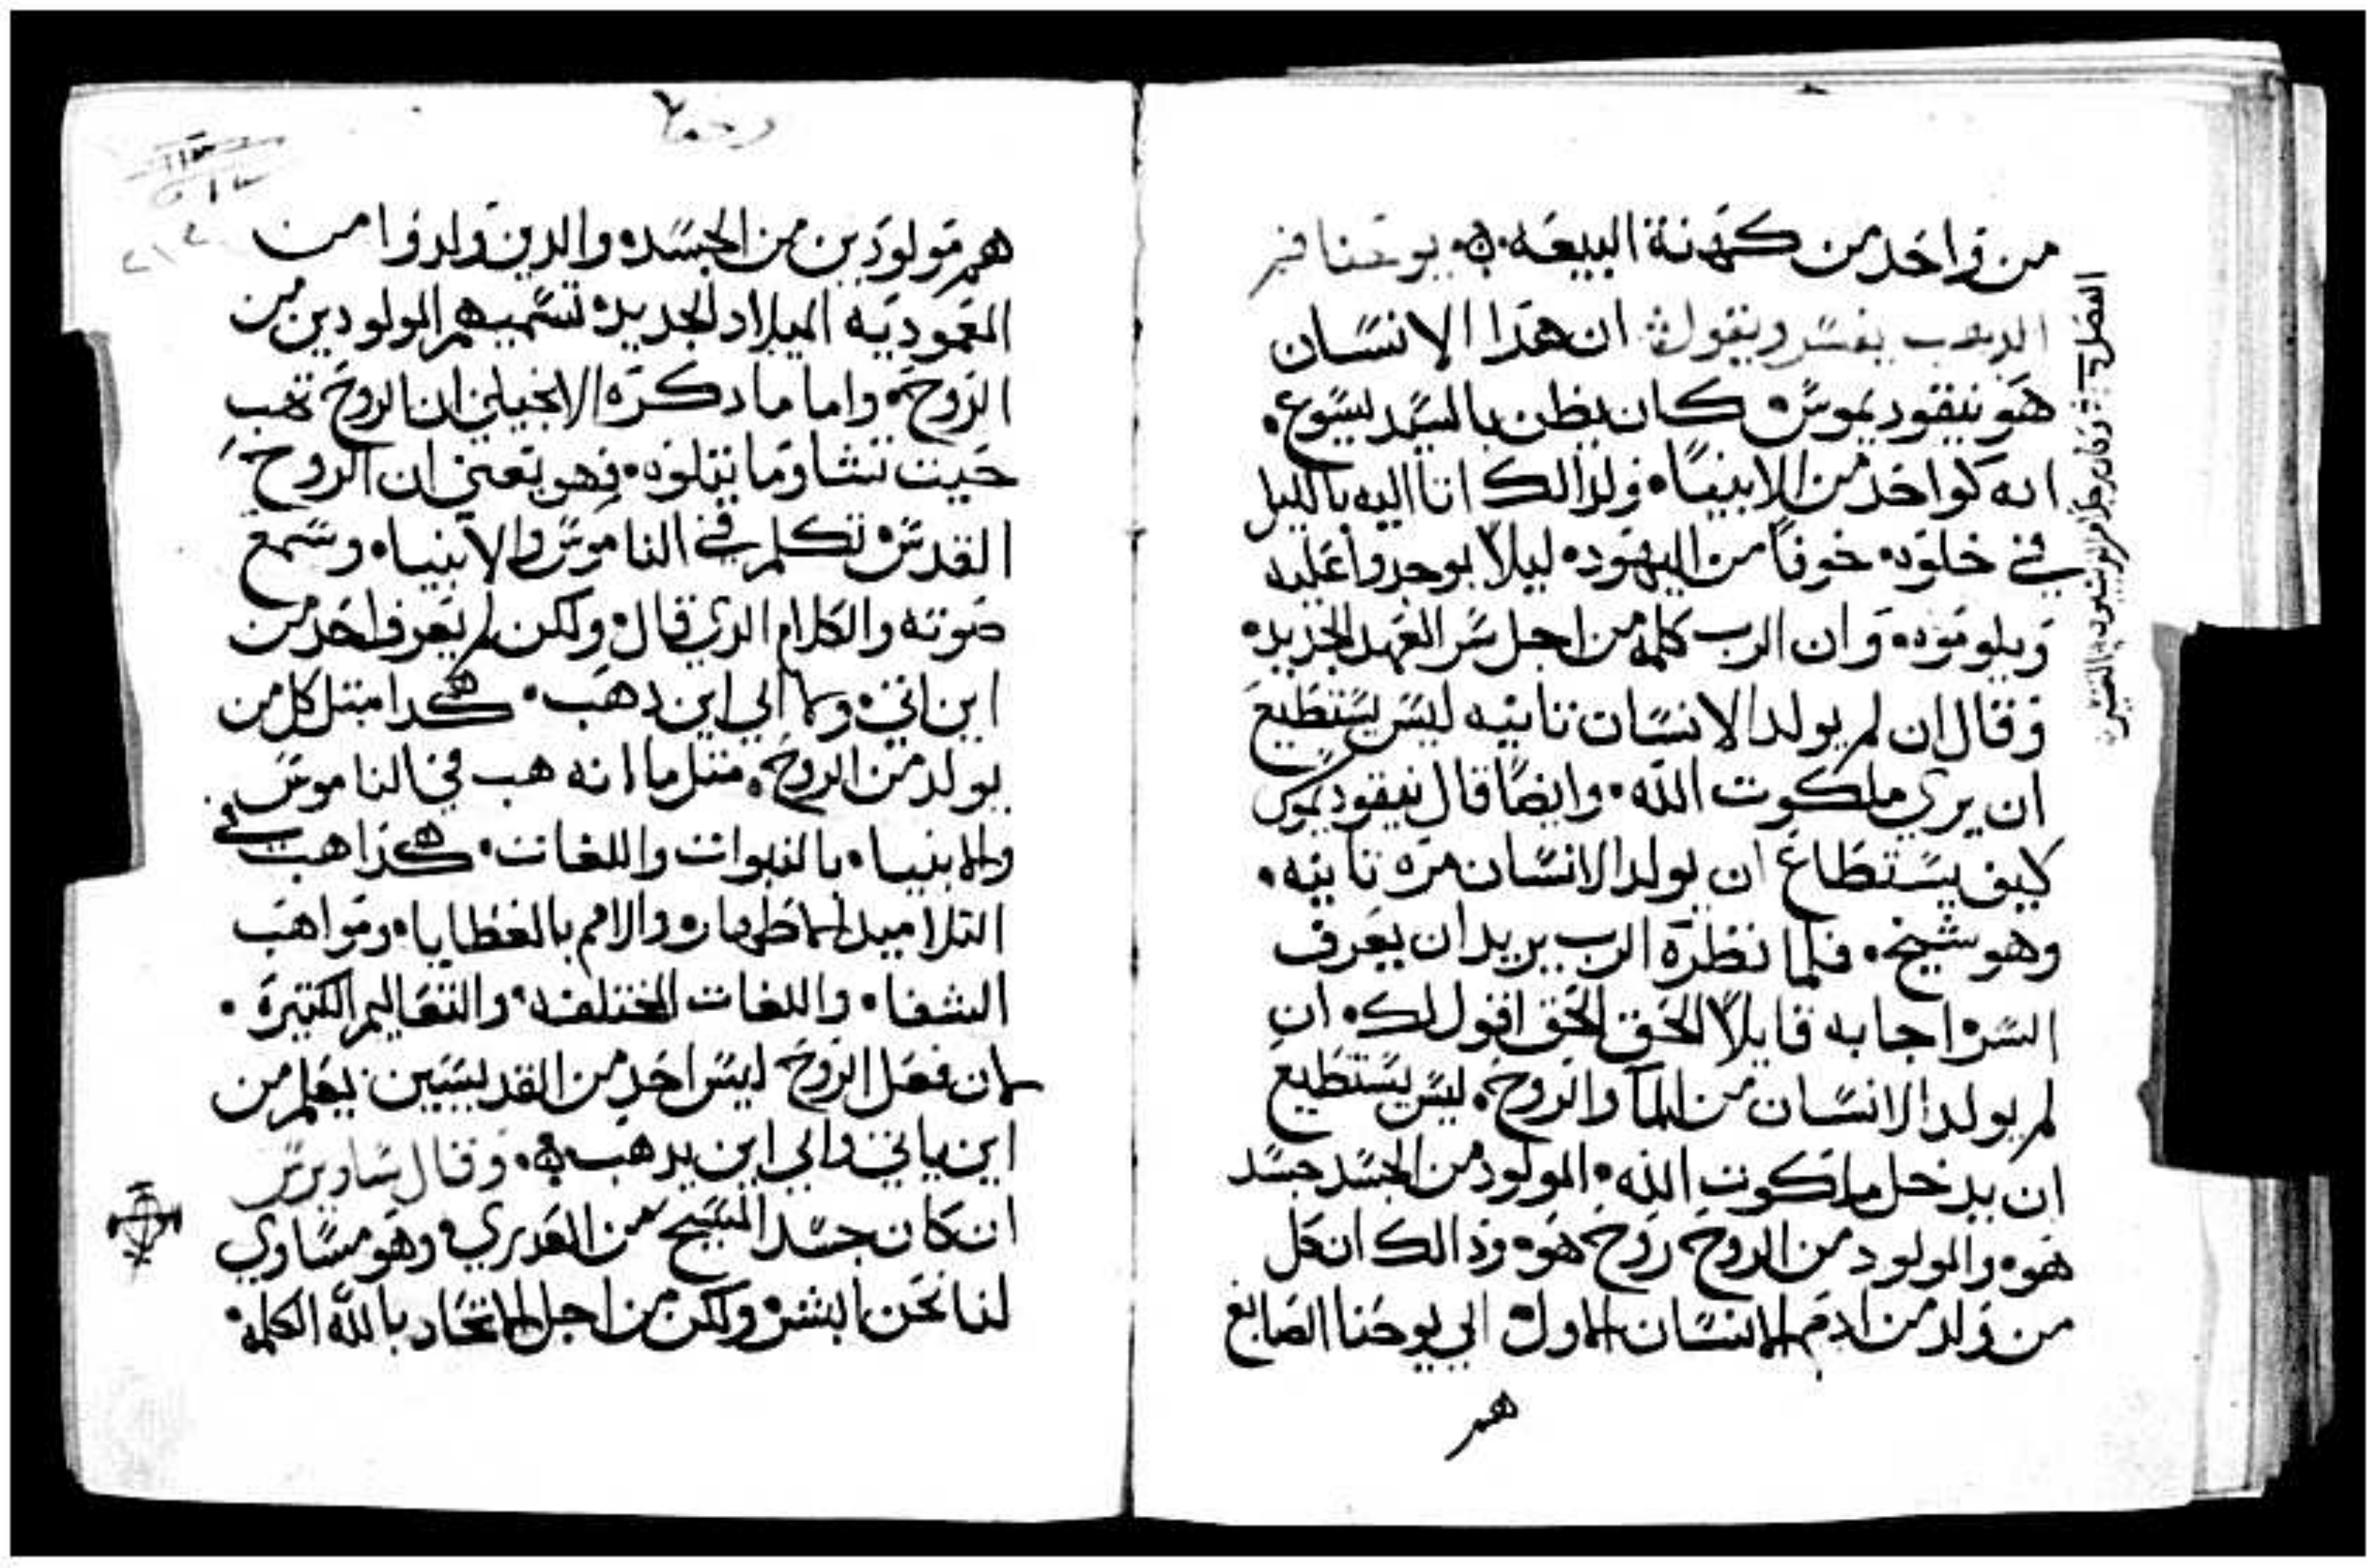 من واحد من كهنة البيعه ۞ يوحنا فم
الدهب يفسر ويقول ان هدا الانسان
هو نيقوديموس كان يظن بالسيد يسوع
انه كواحد من الانبيا ولدالك اتا اليه بالليل
في خلوه خوفاً من اليهود ليلا يوجدوا عليه
ويلوموه وان الرب كلمه من اجل سر العهد الجديد
وقال ان لم يولد الانسان تانيه ليس يستطيع
ان يري ملكوت الله وايضاً قال نيقوديموس
كيف يستطاع ان يولد الانسان مره تانيه
وهو شيخ فلما نظره الرب يريد ان يعرف
السر اجابه قايلاً الحق الحق اقول لك ان
لم يولد الانسان من الما والروح ليس يستطيع
ان يدخل ملكوت الله المولود من الجسد جسد
هو والمولود من الروح روح هو ودالك ان كل
من ولد من ادم الانسان الاول الي يوحنا الصابغ
هم
هم مولودين من الجسد والدين ولدوا من
المعموديه الميلاد الجديد تسميهم المولودين من
الروح واما ما دكره الانجيلي ان الروح تهب
حيت تشا وما يتلوه فهو يعني ان الروح
القدس تكلم في الناموس والانبيا وسمع
صوته والكلام الدي قال ولكن لم يعرف احد من
اين اتي ولا الي اين دهب هكدا متل كل من
يولد من الروح متل ما انه هب في الناموس
والانبيا بالنبوات واللغات هكدا هب في
التلاميد الاطهار والامم بالعطايا ومواهب
الشفا واللغات المختلفه والتعاليم الكتيره
لان فعل الروح ليس احد من القديسيين يعلم من
اين ياتي والي اين يدهب ۞ وقال ساويرس
ان كان جسد المسيح من العدري وهو مساوي
لنا نحن البشر ولكن من اجل الاتحاد بالله الكلمه